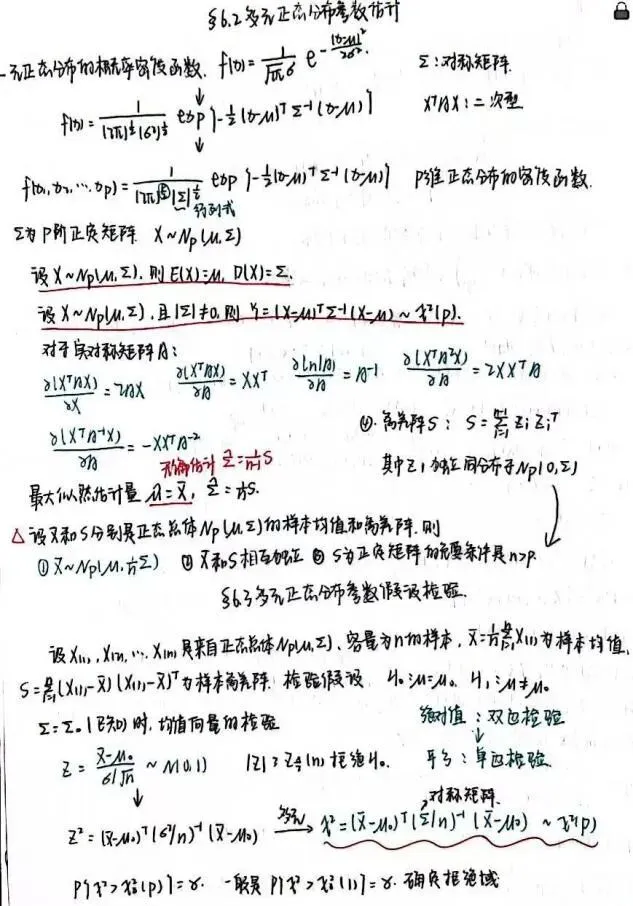 §6.2 多元正态分布参数估计
一元正态分布的概率密度函数. f(x)=1/(√2π σ) e^{-(x-μ)²/2σ²}. Σ:对称矩阵.
↓
f(x)=1/((2π)^{1/2}(σ²)^{1/2}) exp{-1/2(x-μ)ᵀΣ⁻¹(x-μ)} XᵀAX:二次型
↓
f(x₁,x₂,…xp)=1/((2π)^{p/2}|Σ|^{1/2}) exp{-1/2(x-μ)ᵀΣ⁻¹(x-μ)} P维正态分布的密度函数.
行列式
Σ为P阶正定矩阵. X~Np(μ,Σ)
设X~Np(μ,Σ),则E(X)=μ, D(X)=Σ.
设X~Np(μ,Σ),且|Σ|≠0,则 Y=(X-μ)ᵀΣ⁻¹(X-μ)~χ²(p).
对于实对称矩阵A:
∂(XᵀAX)/∂X=2AX ∂(XᵀAX)/∂A=XXᵀ ∂(ln|A|)/∂A=A⁻¹ ∂(XᵀA²X)/∂A=2XXᵀA
∂(XᵀA⁻¹X)/∂A=-XXᵀA⁻² ④.离差阵S: S=Σ_{i=1}^{n-1} ZiZiᵀ
无偏估计 Σ̂=1/(n-1)S 其中Zi独立同分布于Np(0,Σ)
最大似然估计量 μ̂=X̄, Σ̂=1/n S.
△设X̄和S分别是正态总体Np(μ,Σ)的样本均值和离差阵.则
①X̄~Np(μ,1/nΣ) ②X̄和S相互独立 ③S为正定矩阵的充要条件是n>p.
§6.3多元正态分布参数假设检验.
设X(1),X(2),…,X(n)是来自正态总体Np(μ,Σ)、容量为n的样本, X̄=1/n Σ_{i=1}^{n} X(i)为样本均值,
S=Σ_{i=1}^{n}(X(i)-X̄)(X(i)-X̄)ᵀ为样本离差阵. 检验假设 H₀:μ=μ₀ H₁:μ≠μ₀
Σ=Σ₀(已知)时,均值向量的检验 绝对值:双边检验
↓
Z=(X̄-μ₀)/(σ/√n)~N(0,1) |Z|>Z_{α/2}(n)拒绝H₀. 平方:单边检验
↓ 对称矩阵.
Z²=(X̄-μ₀)ᵀ(σ²/n)⁻¹(X̄-μ₀) 多元→ χ²=(X̄-μ₀)ᵀ(Σ/n)⁻¹(X̄-μ₀) ~ χ²(p)
P{χ²>χ²α(p)}=α. 一般是P{χ²>χ²α(1)}=α.确定拒绝域